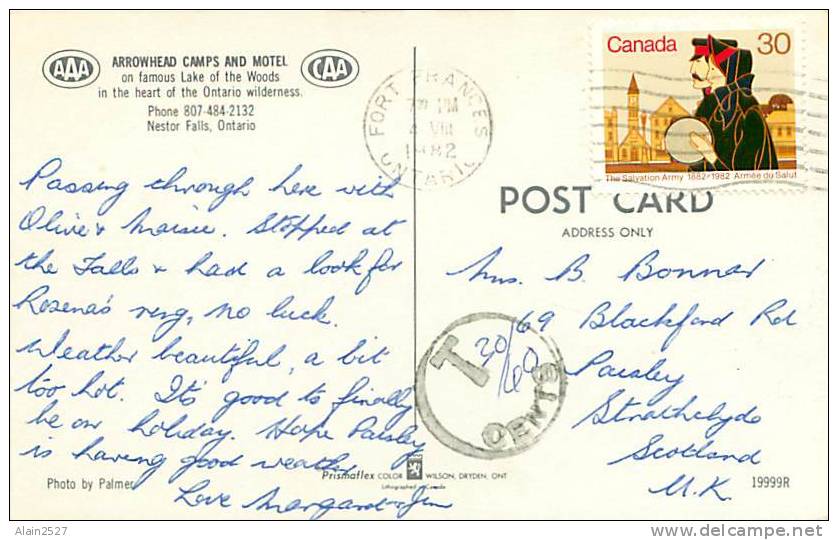 AAA
ARROWHEAD CAMPS AND MOTEL
CAA
on famous Lake of the Woods
in the heart of the Ontario wilderness.
Phone 807-484-2132
Nestor Falls, Ontario
FORT FRANCES
PM
VIII
1982
ONTARIO
Canada 30
The Salvation Army 1882-1982 Armée du Salut
POST CARD
ADDRESS ONLY
Passing through here with
Olive & Maisie. Stopped at
the Falls & had a look for
Rosena's ring, no luck.
Weather beautiful, a bit
too hot. It's good to finally
be on holiday. Hope Paisley
is having good weather
Love Margaret & Jim
Mrs. B. Bonnar
69 Blackford Rd
Paisley
Strathclyde
Scotland
U.K.
T
30/60
CENTS
Photo by Palmer
Prismaflex COLOR WILSON, DRYDEN, ONT
Lithographed in Canada
19999R
Alain2527
delcampe.net